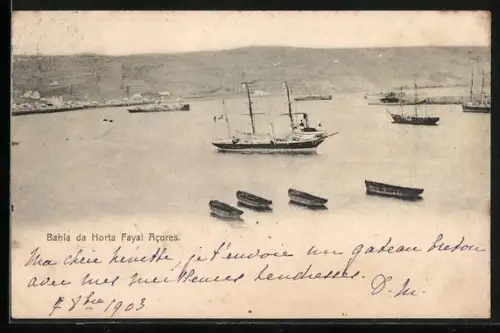 Bahia da Horta Fayal Açores.
Ma chère henriette, je t'envoie un gateau breton
avec mes meilleures tendresses. D. M.
7 8bre 1903